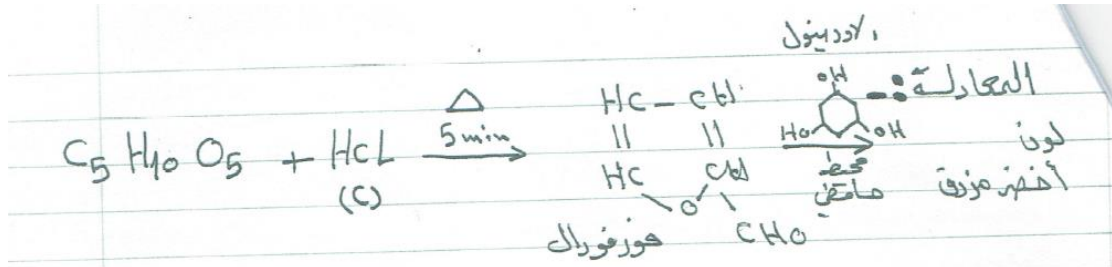 المعادلة :-
C5 H10 O5 + HCL (C)
Δ
5 min
HC - CH
|| ||
HC CH
O
CHO
فورفورال
OH
HO OH
محيط
حامضي
لون
أخضر مزرق